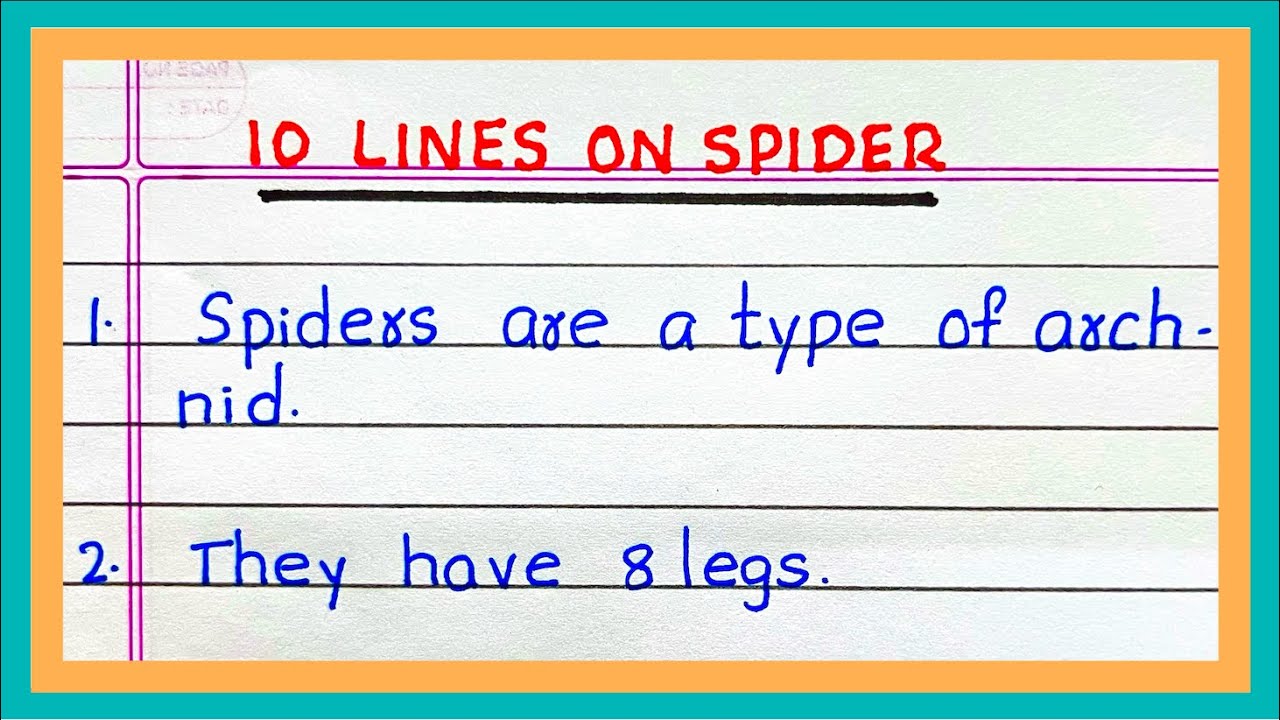 10 LINES ON SPIDER
1. Spiders are a type of arch-
nid.
2. They have 8 legs.